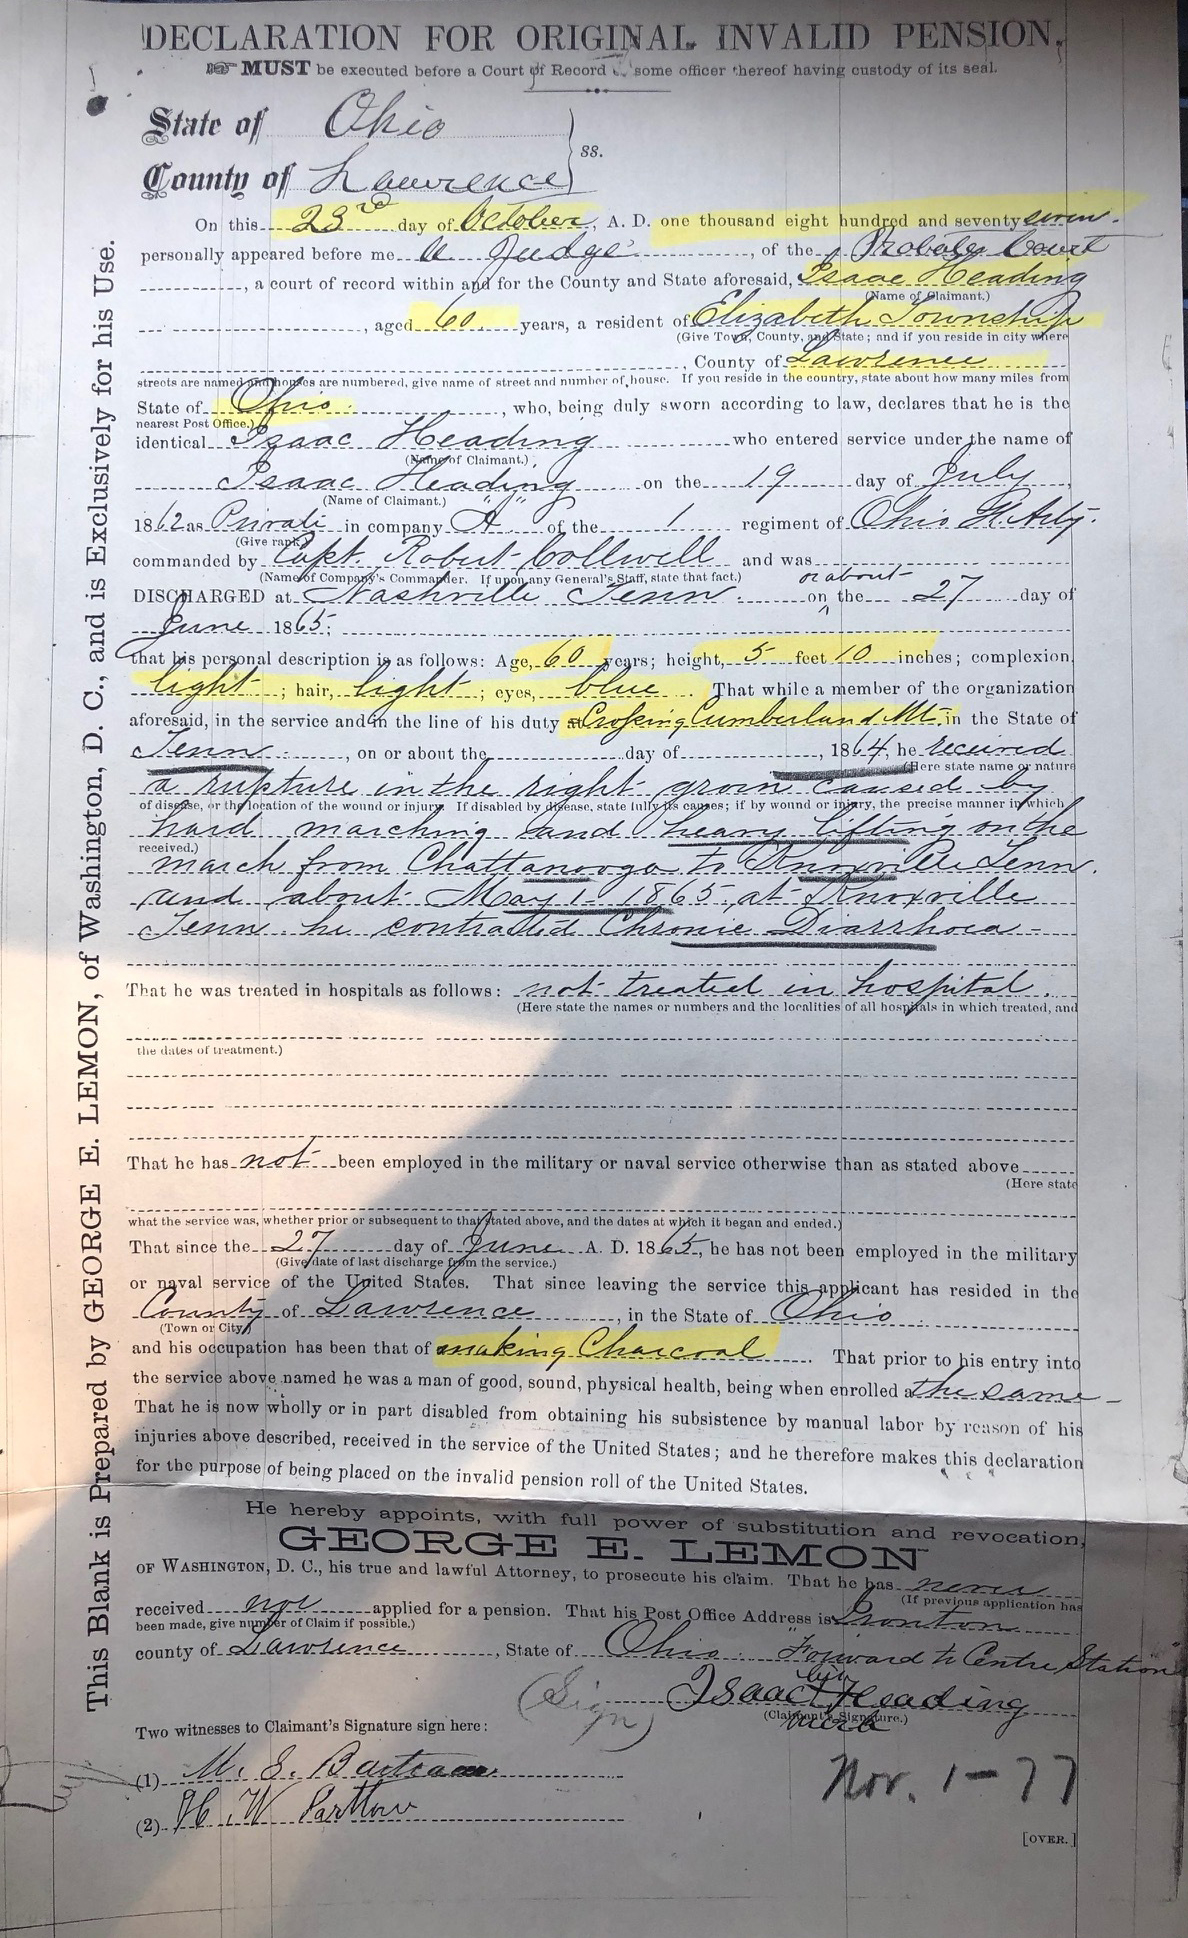 DECLARATION FOR ORIGINAL INVALID PENSION.
MUST be executed before a Court of Record or some officer thereof having custody of its seal.
State of Ohio
County of Lawrence } ss.
On this 23rd day of October, A. D. one thousand eight hundred and seventy seven.
personally appeared before me a Judge, of the Probate Court
, a court of record within and for the County and State aforesaid, Isaac Heading
(Name of Claimant.)
, aged 60 years, a resident of Elizabeth Township
(Give Town, County, and State; and if you reside in city where
, County of Lawrence
streets are named and houses are numbered, give name of street and number of house. If you reside in the country, state about how many miles from
State of Ohio, who, being duly sworn according to law, declares that he is the
nearest Post Office.)
identical Isaac Heading who entered service under the name of
(Name of Claimant.)
Isaac Heading on the 19 day of July,
(Name of Claimant.)
1862 as Private in company "A" of the 1 regiment of Ohio H. Arty.
(Give rank.)
commanded by Capt. Robert Collwell and was
(Name of Company's Commander. If upon any General's Staff, state that fact.)
or about
DISCHARGED at Nashville Tenn. on ^ the 27 day of
June 1865;
that his personal description is as follows: Age, 60 years; height, 5 feet 10 inches; complexion,
light; hair, light; eyes, blue. That while a member of the organization
aforesaid, in the service and in the line of his duty at Crossing Cumberland Mt. in the State of
Tenn., on or about the day of , 1864, he received
(Here state name or nature
a rupture in the right groin caused by
of disease, or the location of the wound or injury. If disabled by disease, state fully its causes; if by wound or injury, the precise manner in which
hard marching and heavy lifting on the
received.)
march from Chattanooga to Knoxville Tenn.
and about May 1- 1865, at Knoxville
Tenn. he contracted Chronic Diarrhoea -
That he was treated in hospitals as follows: not treated in hospital.
(Here state the names or numbers and the localities of all hospitals in which treated, and
the dates of treatment.)
That he has not been employed in the military or naval service otherwise than as stated above
(Here state
what the service was, whether prior or subsequent to that stated above, and the dates at which it began and ended.)
That since the 27 day of June A. D. 1865, he has not been employed in the military
(Give date of last discharge from the service.)
or naval service of the United States. That since leaving the service this applicant has resided in the
County of Lawrence, in the State of Ohio
(Town or City)
and his occupation has been that of making Charcoal. That prior to his entry into
the service above named he was a man of good, sound, physical health, being when enrolled a the same -
That he is now wholly or in part disabled from obtaining his subsistence by manual labor by reason of his
injuries above described, received in the service of the United States; and he therefore makes this declaration
for the purpose of being placed on the invalid pension roll of the United States.
He hereby appoints, with full power of substitution and revocation,
GEORGE E. LEMON
OF WASHINGTON, D. C., his true and lawful Attorney, to prosecute his claim. That he has never
(If previous application has
received nor applied for a pension. That his Post Office Address is Ironton
been made, give number of Claim if possible.)
county of Lawrence, State of Ohio. "Forward to Centre Station"
his
(Sign) Isaac X Heading
(Claimant's Signature.)
mark
Two witnesses to Claimant's Signature sign here:
(1) M. S. Bartram
(2) H. W. Partlow
Nov. 1-77
[OVER.]
This Blank is Prepared by GEORGE E. LEMON, of Washington, D. C., and is Exclusively for his Use.